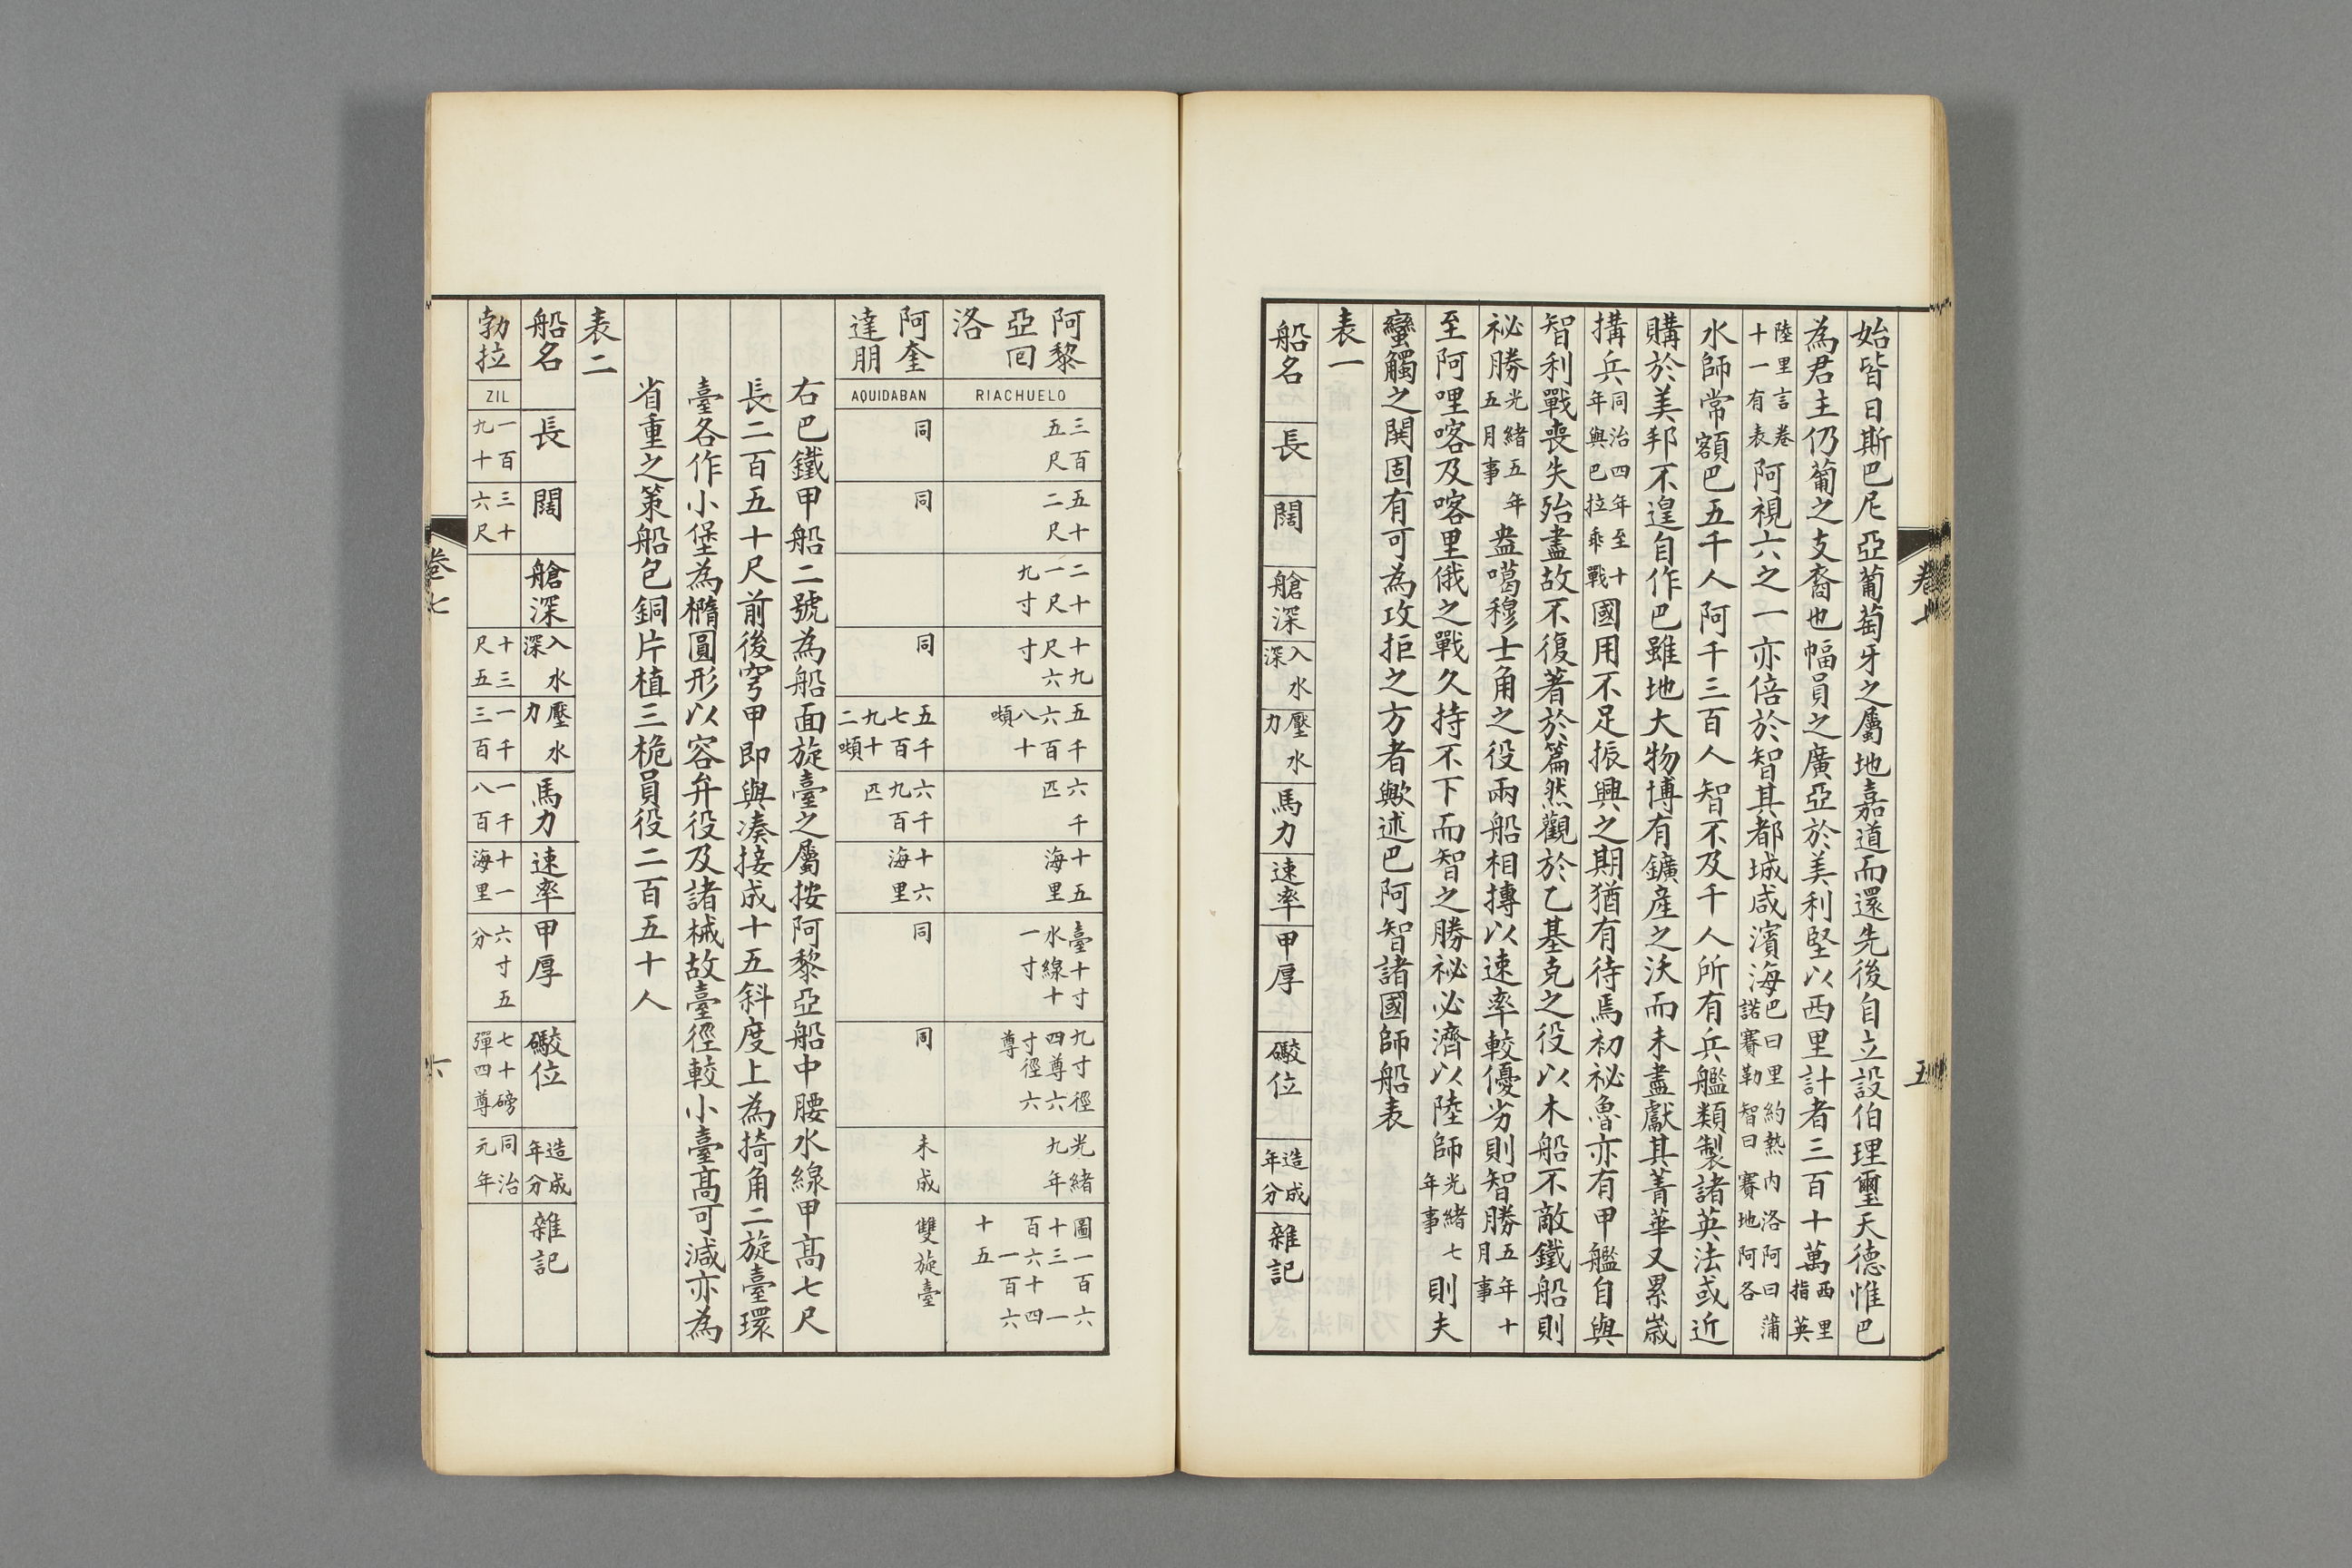 始皆日斯巴尼亞葡萄牙之屬地嘉道而還先後自立設伯理璽天德惟巴
為君主仍葡之支裔也幅員之廣亞於美利堅以西里計者三百十萬西里指英
陸里言卷十一有表阿視六之一亦倍於智其都城咸濱海巴曰里約熱內洛阿曰蒲諾賽勒智曰賽地阿各
水師常額巴五千人阿千三百人智不及千人所有兵艦類製諸英法或近
購於美邦不遑自作巴雖地大物博有鑛產之沃而未盡獻其菁華又累歲
搆兵同治四年至十年與巴拉乖戰國用不足振興之期猶有待焉初祕魯亦有甲艦自與
智利戰喪失殆盡故不復著於篇然觀於乙基克之役以木船不敵鐵船則
祕勝光緒五年五月事盎噶穆士角之役兩船相摶以速率較優劣則智勝五年十月事
至阿哩喀及喀里俄之戰久持不下而智之勝祕必濟以陸師光緒七年事則夫
蠻觸之鬨固有可為攻拒之方者歟述巴阿智諸國師船表
表一
船名
長
闊
艙深
入水深
壓水力
馬力
速率
甲厚
礮位
造成年分
雜記
卷七
五
阿黎亞囘洛
RIACHUELO
三百五尺
五十二尺
二十一尺九寸
十九尺六寸
五千六百八十噸
六千匹
十五海里
臺十寸水線十一寸
九寸徑四尊六寸徑六尊
光緒九年
圖一百六十三一百六十四一百六十五
阿奎達朋
AQUIDABAN
同
同
同
五千七百九十二噸
六千九百匹
十六海里
同
同
未成
雙旋臺
右巴鐵甲船二號為船面旋臺之屬按阿黎亞船中腰水線甲高七尺
長二百五十尺前後穹甲即與湊接成十五斜度上為掎角二旋臺環
臺各作小堡為橢圓形以容弁役及諸械故臺徑較小臺高可減亦為
省重之策船包銅片植三桅員役二百五十人
表二
船名
長
闊
艙深
入水深
壓水力
馬力
速率
甲厚
礮位
造成年分
雜記
勃拉
ZIL
一百九十
三十六尺
十三尺五
一千三百
一千八百
十一海里
六寸五分
七十磅彈四尊
同治元年
卷七
六